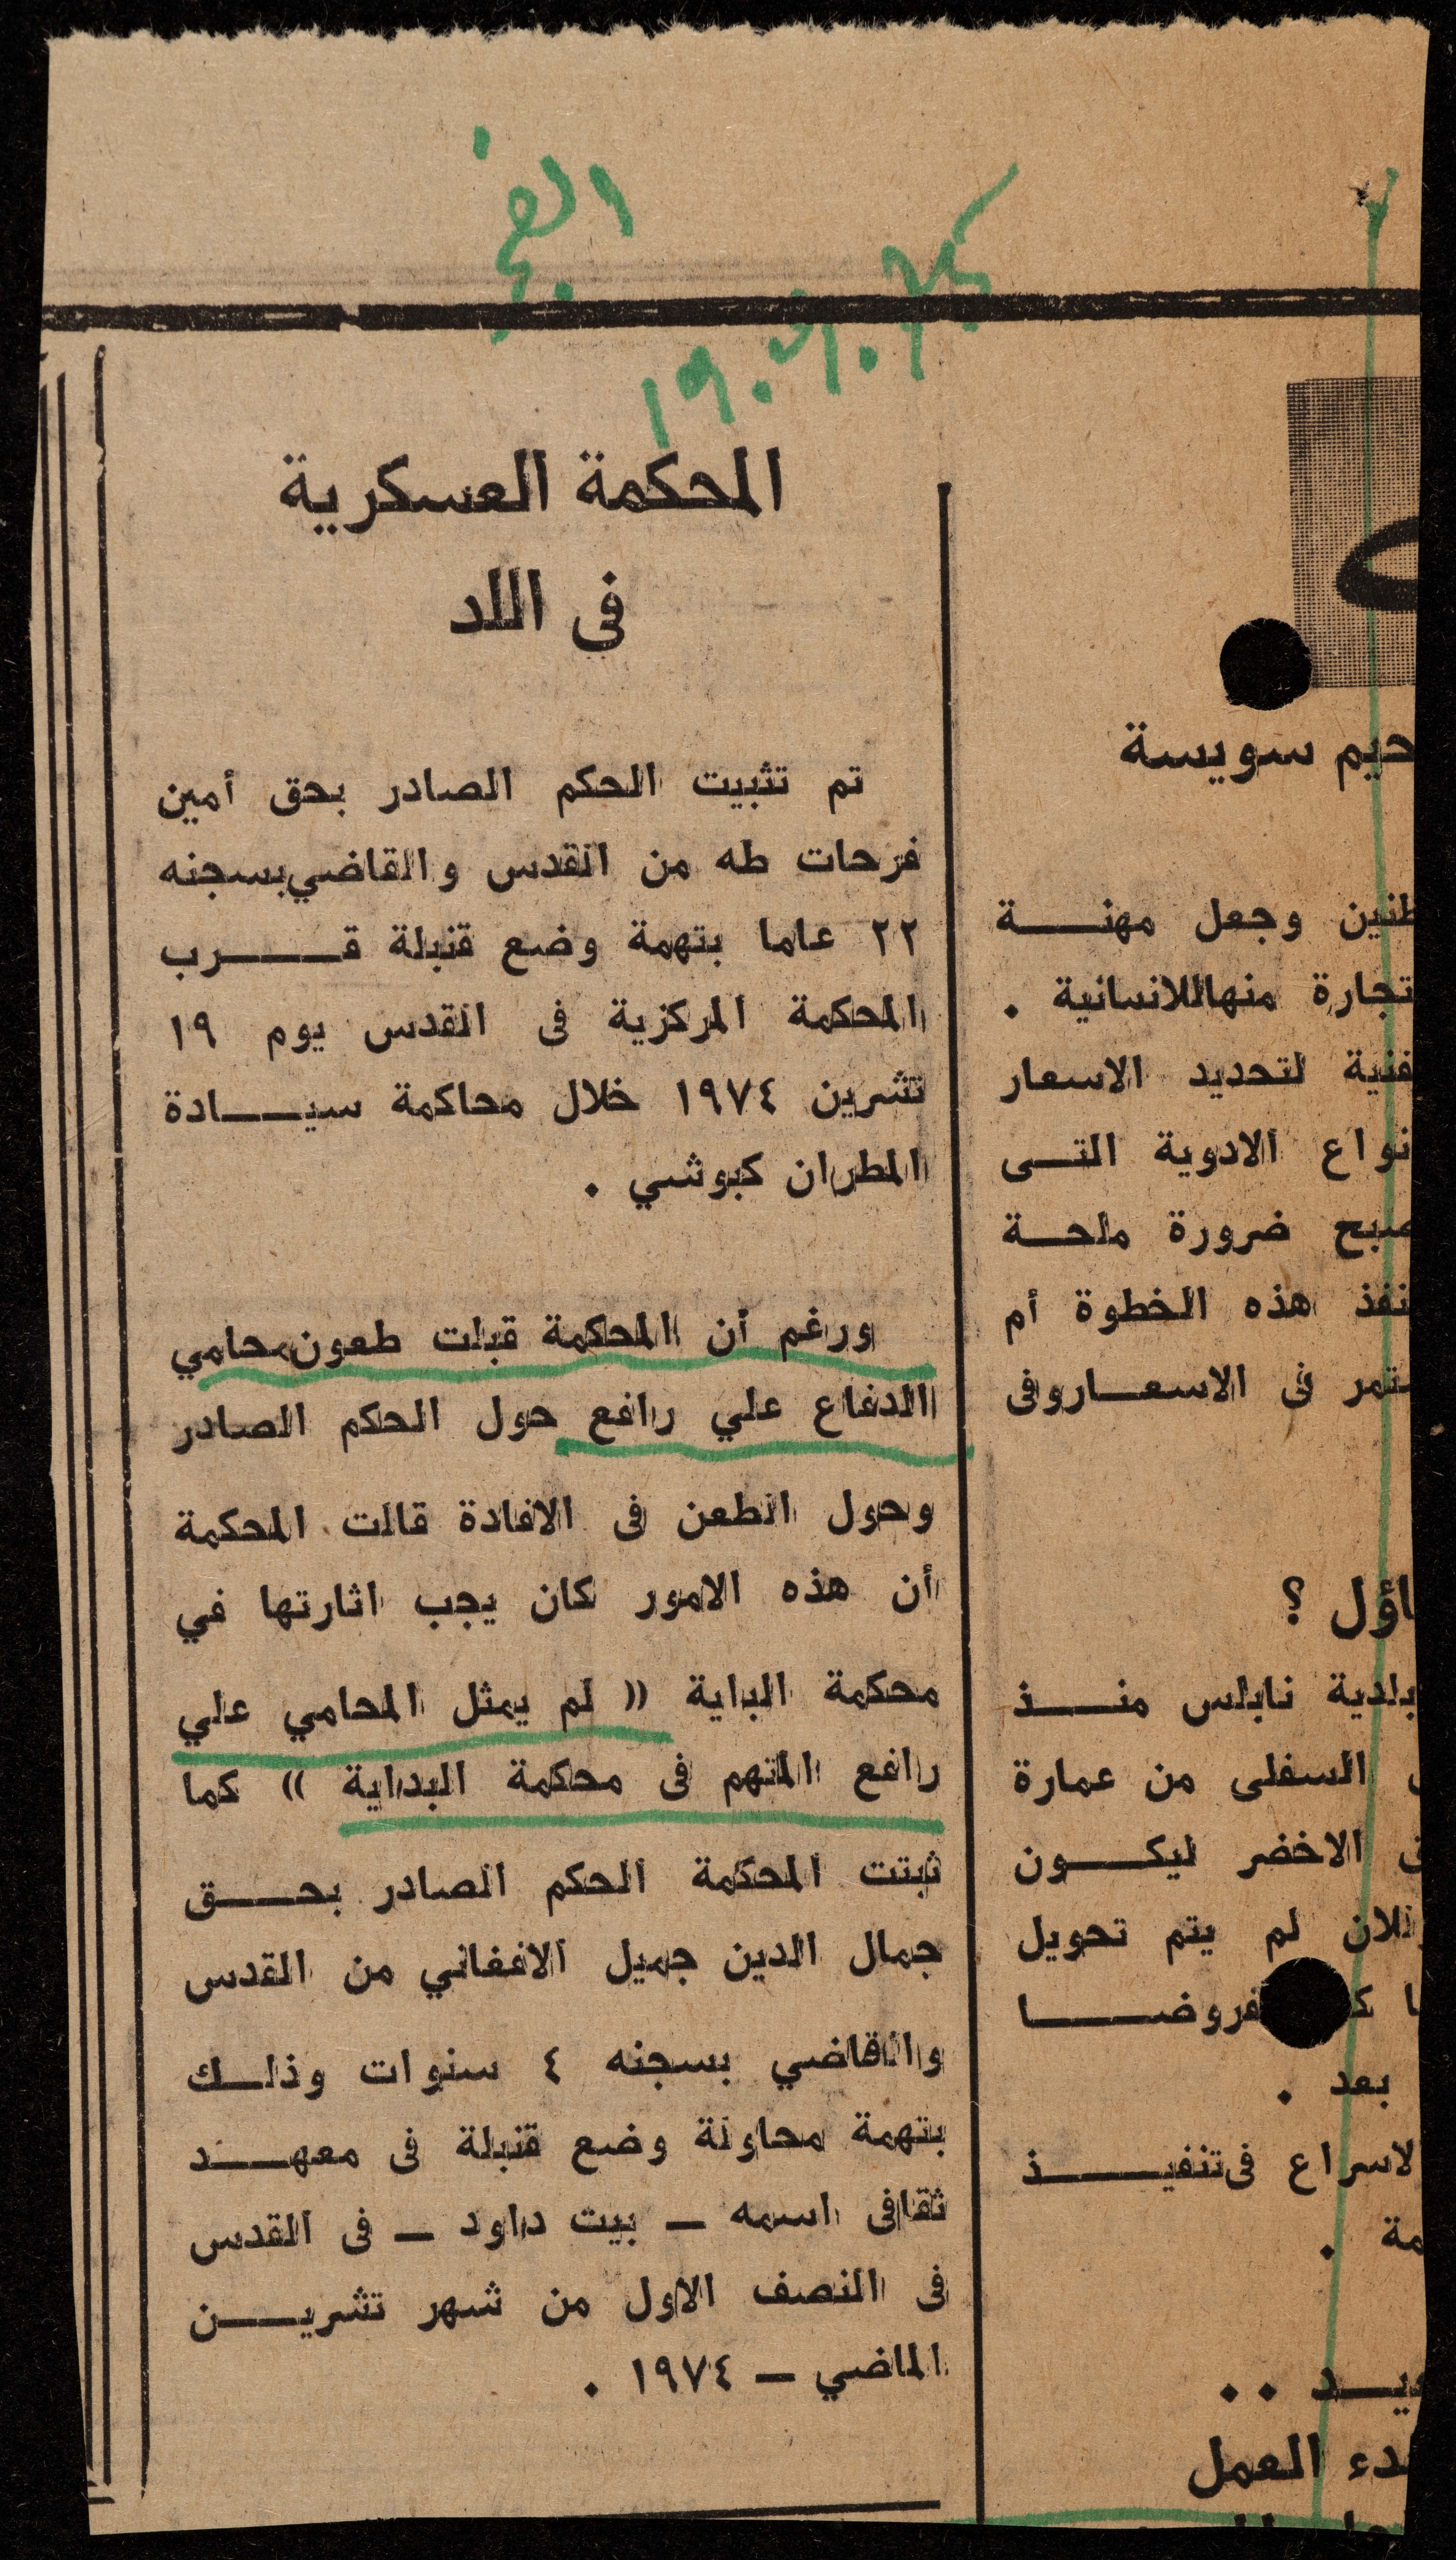 المحكمة العسكرية
فى اللد
تم تثبيت الحكم الصادر بحق أمين
فرحات طه من القدس والقاضي بسجنه
٢٢ عاما بتهمة وضع قنبلة قـــرب
المحكمة المركزية فى القدس يوم ١٩
تشرين ١٩٧٤ خلال محاكمة سيـــادة
المطران كبوشي .
ورغم أن المحكمة قبلت طعون محامي
الدفاع علي رافع حول الحكم الصادر
وحول الطعن فى الافادة قالت المحكمة
أن هذه الامور كان يجب اثارتها في
محكمة الباية (( لم يمثل المحامي علي
رافع المتهم فى محكمة البداية )) كما
ثبتت المحكمة الحكم الصادر بحـــق
جمال الدين جميل الافغاني من القدس
والقاضي بسجنه ٤ سنوات وذلــك
بتهمة محاولة وضع قنبلة فى معهـــد
ثقافى اسمه ــ بيت داود ــ فى القدس
فى النصف الاول من شهر تشريـــن
الماضي ــ ١٩٧٤ .
سويسة
وجعل مهنـــة
تجارة منها للانسانية .
فنية لتحديد الاسعار
الادوية التــى
ضرورة ملحــة
هذه الخطوة أم
فى الاسعــار وفى
؟
بلدية نابلس منـــذ
السفلى من عمارة
الاخضر ليكـــون
لم يتم تحويل
بعد .
فى تنفيـــذ
العمل